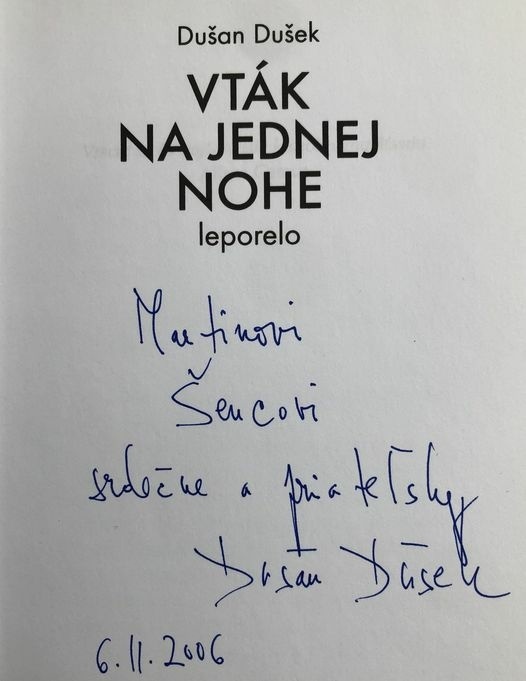 Dušan Dušek
VTÁK
NA JEDNEJ
NOHE
leporelo
Martinovi
Šencovi
srdečne a priateľsky
Dušan Dušek
6. 11. 2006